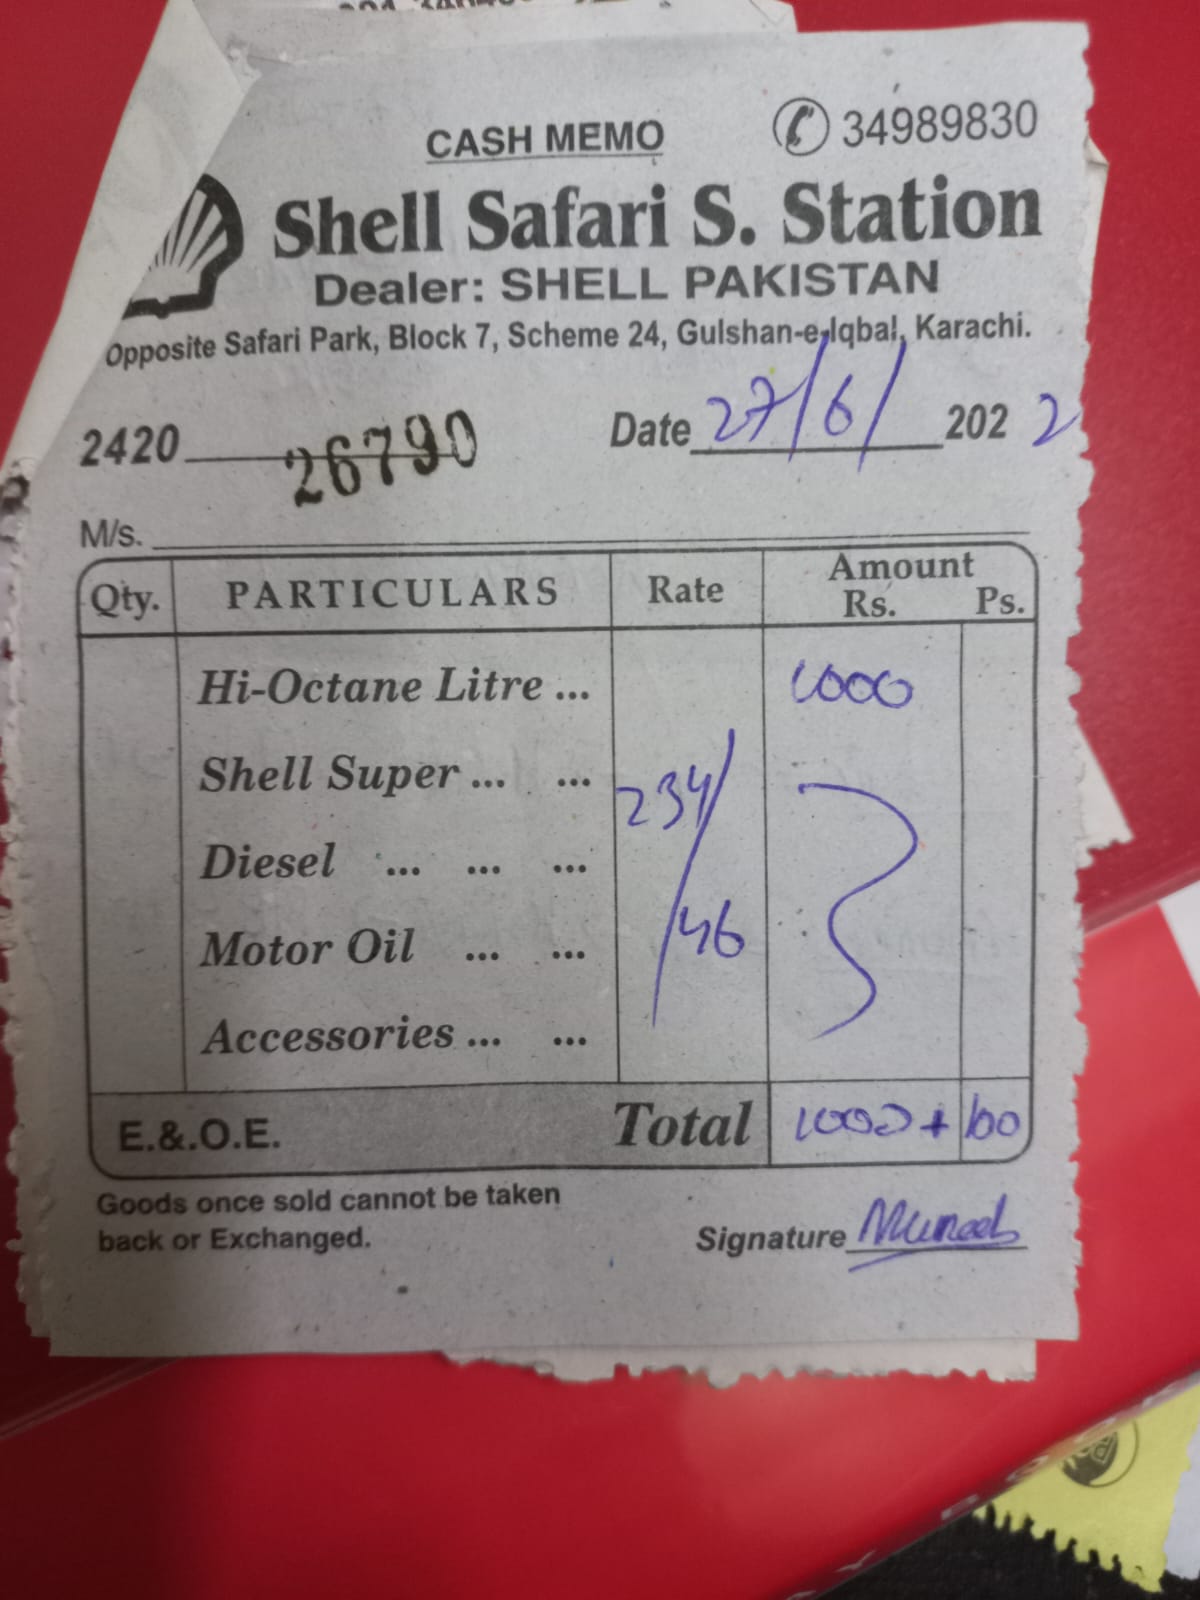 CASH MEMO 34989830
Shell Safari S. Station
Dealer: SHELL PAKISTAN
Opposite Safari Park, Block 7, Scheme 24, Gulshan-e-Iqbal, Karachi.
2420 26790 Date 27/6/ 2022
M/s.
Qty. PARTICULARS Rate Amount
Rs. Ps.
Hi-Octane Litre ... 1000
Shell Super ... ... 234/
Diesel ... ... ...
Motor Oil ... ... /46
Accessories ... ...
E.&.O.E. Total 1000 + 100
Goods once sold cannot be taken
back or Exchanged.
Signature